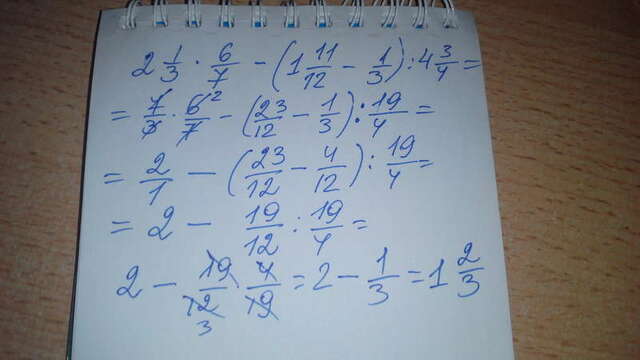 2 1/3 · 6/7 - (1 11/12 - 1/3) : 4 3/4 =
= 7/3 · 6 2/7 - (23/12 - 1/3) : 19/4 =
= 2/1 - (23/12 - 4/12) : 19/4 =
= 2 - 19/12 : 19/4 =
2 - 19/12 3 4/19 = 2 - 1/3 = 1 2/3